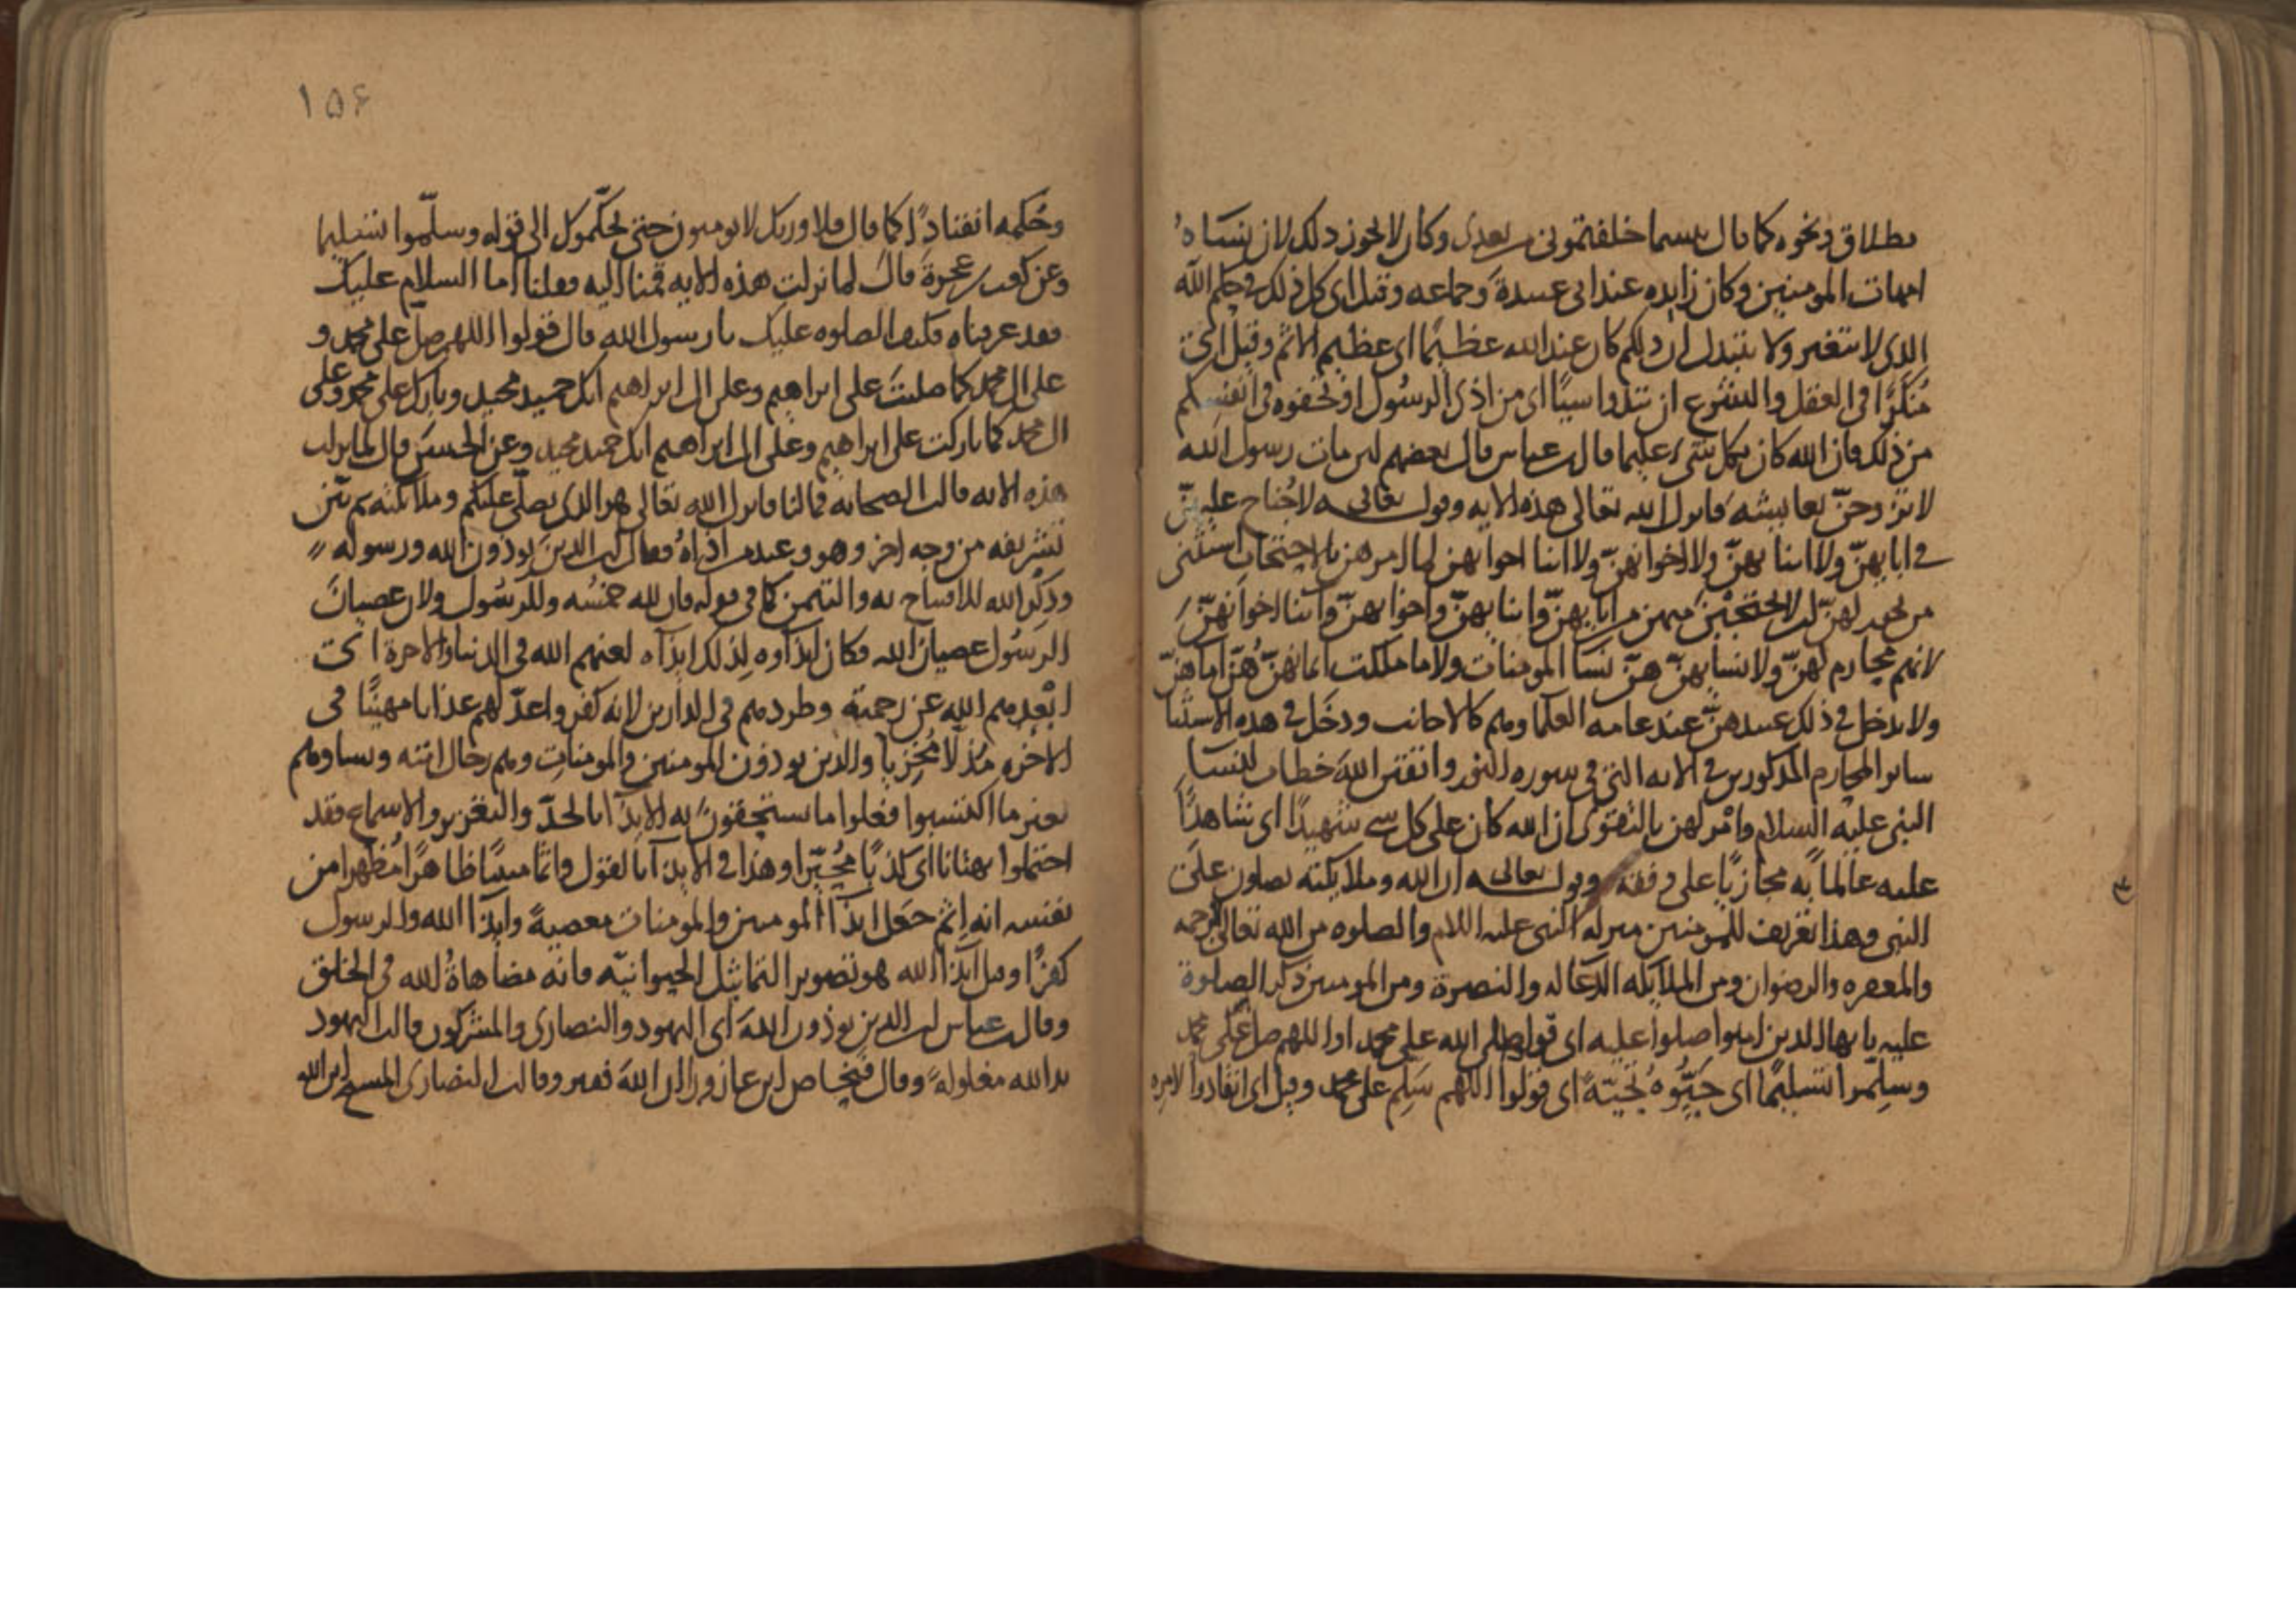 بطلاق ونحوه كما قال بئسما خلفتموني من بعدى وكان لا يجوز ذلك لان نساه
امهات المومنين وكان زايده عند ابى عبيدة وجماعه وقيل اى كل ذلك فى حكم الله
الذى لا يتغير ولا يتبدل ان ذلكم كان عند الله عظيما اى عظيم الاثم وقيل اى
منكرا فى العقل والشرع ان تبدوا شيئا اى من اذى الرسول او تخفوه فى انفسكم
من ذلك فان الله كان بكل شىء عليما قال ابن عباس قال بعضهم لئن مات رسول الله
لاتزوجن بعايشه فانزل الله تعالى هذه الايه وقوله تعالى لا جناح عليهن
فى ابايهن ولا ابنايهن ولا اخوانهن ولا ابنا اخوانهن لما امرهن بالاحتجاب استثنى
من لهن ان لا يحتجبن منهن من ابايهن وابنايهن واخوانهن وابنا اخوانهن
لانهم محارم لهن ولا نسايهن هن نسا المومنات ولا ما ملكت ايمانهن هن اماهن
ولا يدخل فى ذلك عبيدهن عند عامه العلما وهم كالاجانب ودخل فى هذه الاستثنا
ساير المحارم المذكورين فى الايه التى فى سوره النور واتقين الله خطاب لنسا
النبى عليه السلام وامر لهن بالتقوى ان الله كان على كل شى شهيدا اى شاهدا
عليه عالما به مجازيا على وفقه وقوله تعالى ان الله وملايكته يصلون على
النبى وهذا تعريف للمومنين منزله النبى عليه السلام والصلوه من الله تعالى الرحمه
والمغفره والرضوان ومن الملايكه الدعا له والنصرة ومن المومنين ذكر الصلوة
عليه يا يها الذين امنوا صلوا عليه اى قولوا صلى الله على محمد او اللهم صل على محمد
وسلموا تسليما اى حيوه تحية اى قولوا اللهم سلم على محمد وقيل اى انقادوا لامره
١٥٤
وحكمه انقيادا كما قال فلا وربك لا يومنون حتى يحكموك الى قوله وسلموا تسليما
وعن كعب بن عجرة قال لما نزلت هذه الايه قمنا اليه وقلنا اما السلام عليك
فقد عرفناه فكيف الصلوه عليك يا رسول الله قال قولوا اللهم صل على محمد و
على ال محمد كما صليت على ابراهيم وعلى ال ابراهيم انك حميد مجيد وبارك على محمد وعلى
ال محمد كما باركت على ابراهيم وعلى ال ابراهيم انك حميد مجيد وعن الحسن قال لما نزلت
هذه الايه قالت الصحابه فما لنا فانزل الله تعالى هو الذى يصلى عليكم وملايكته ثم بين
تشريفه من وجه اخر وهو وعيد من اذاه فقال ان الذين يوذون الله ورسوله
وذكر الله للافتتاح به والتيمن كما فى قوله فان لله خمسه وللرسول ولان عصيان
الرسول عصيان الله فكان ايذاوه لذلك ايذاه لعنهم الله فى الدنيا والاخرة اى
ابعدهم الله عن رحمته وطردهم فى الدارين لانه كفر واعد لهم عذابا مهينا فى
الاخره مذلا مخزيا والذين يوذون المومنين والمومنات وهم رجال امته ونساوهم
بغير ما اكتسبوا فعلوا ما يستحقون به الايذا بالحد والتعزير والاسماع فقد
احتملوا بهتانا اى كذبا محيرا وهذا فى الايذا بالقول واثما مبينا ظاهرا مظهرا من
نفسه انه اثم جعل ايذا المومنين والمومنات معصية وايذا الله والرسول
كفرا وقيل ايذا الله هو تصوير التماثيل الحيوانيه فانه مضاهاة لله فى الخلق
وقال ابن عباس ان الذين يوذون الله اى اليهود والنصارى والمشركون قالت اليهود
يد الله مغلوله وقال فنحاص ابن عازورا ان الله فقير وقالت النصارى المسيح ابن الله